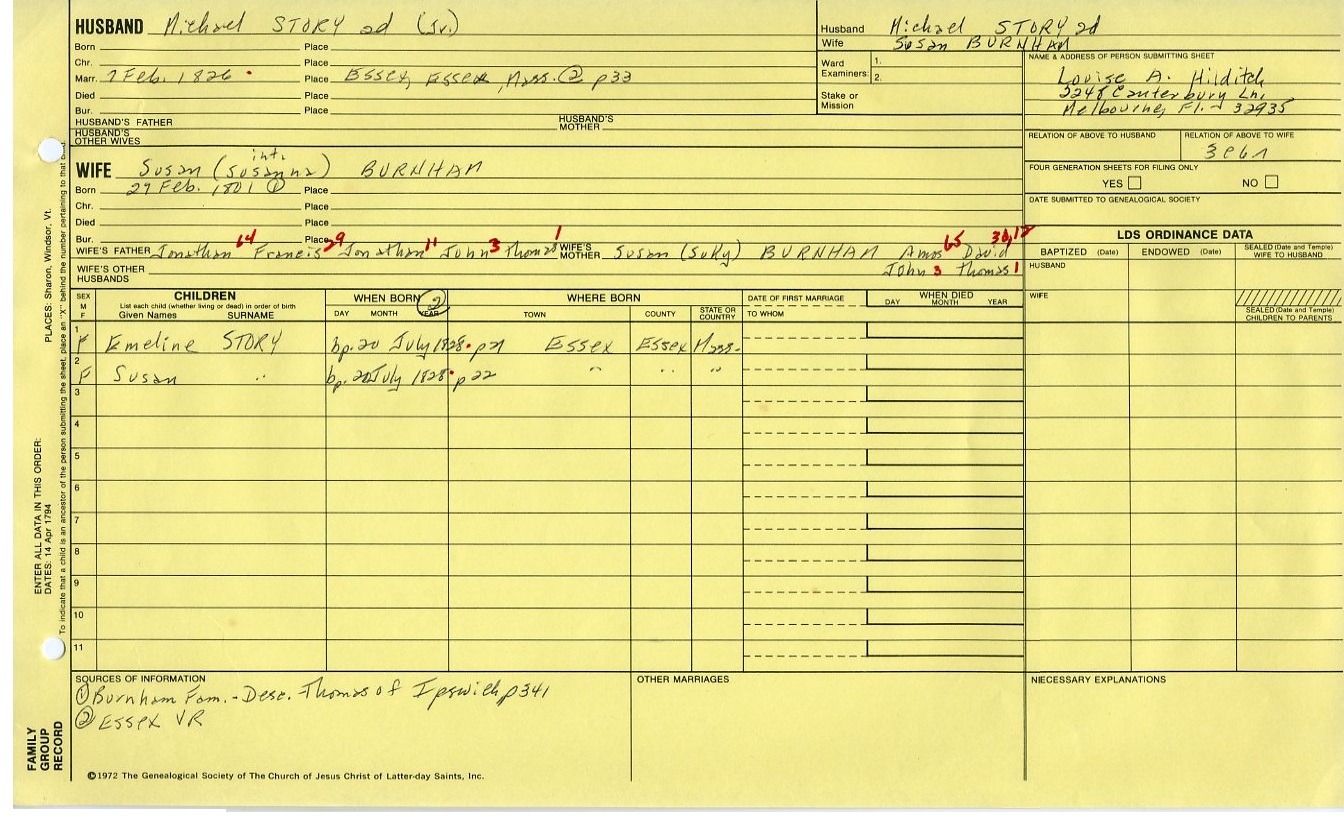 HUSBAND Michael STORY 2d (Jr.)
Born Place
Chr. Place
Marr. 7 Feb. 1826 Place Essex, Essex, Mass. ② p33
Died Place
Bur. Place
HUSBAND'S FATHER HUSBAND'S MOTHER
HUSBAND'S OTHER WIVES
Husband Michael STORY 2d
Wife Susan BURNHAM
Ward Examiners: 1.
2.
Stake or Mission
NAME & ADDRESS OF PERSON SUBMITTING SHEET
Louise A. Hilditch
2248 Canterbury Ln.
Melbourne, Fl. 32935
RELATION OF ABOVE TO HUSBAND RELATION OF ABOVE TO WIFE
FOUR GENERATION SHEETS FOR FILING ONLY
YES NO
DATE SUBMITTED TO GENEALOGICAL SOCIETY
int.
WIFE Susan (Susanna) BURNHAM
Born 29 Feb. 1801 ① Place
Chr. Place
Died Place
Bur. Place
64 29 11 3 1 65 1
WIFE'S FATHER Jonathan Francis Jonathan John Thomas WIFE'S MOTHER Susan (Suky) BURNHAM Amos David
John 3 Thomas 1
WIFE'S OTHER HUSBANDS
LDS ORDINANCE DATA
BAPTIZED (Date) ENDOWED (Date) SEALED (Date and Temple) WIFE TO HUSBAND
HUSBAND
WIFE
SEALED (Date and Temple) CHILDREN TO PARENTS
SEX M F
CHILDREN
List each child (whether living or dead) in order of birth
Given Names SURNAME
WHEN BORN ②
DAY MONTH YEAR
WHERE BORN
TOWN COUNTY STATE OR COUNTRY
DATE OF FIRST MARRIAGE
TO WHOM
WHEN DIED
DAY MONTH YEAR
1 F Emeline STORY bp. 20 July 1828 p21 Essex Essex Mass.
2 F Susan " bp. 20 July 1828 p22 " " "
3
4
5
6
7
8
9
10
11
SOURCES OF INFORMATION
① Burnham Fam. - Desc. Thomas of Ipswich p341
② Essex VR
OTHER MARRIAGES
NECESSARY EXPLANATIONS
©1972 The Genealogical Society of The Church of Jesus Christ of Latter-day Saints, Inc.
FAMILY GROUP RECORD
ENTER ALL DATA IN THIS ORDER:
DATES: 14 Apr 1794
PLACES: Sharon, Windsor, Vt.
To indicate that a child is an ancestor of the person submitting the sheet, place an "X" behind the number pertaining to that